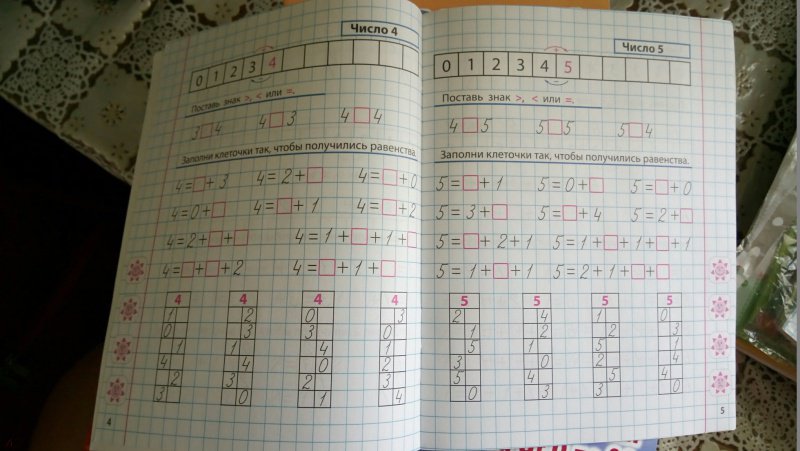 Число 4
0 1 2 3 4
Поставь знак >, < или =.
3□4 4□3 4□4
Заполни клеточки так, чтобы получились равенства.
4=□+3 4=2+□ 4=□+0
4=0+□ 4=□+1 4=□+2
4=2+□+□ 4=1+□+1+□
4=□+□+2 4=□+1+□
4 4 4 4
1 2 0 3
0 3 3 0
1 1 4 1
4 4 0 2
2 3 2 3
3 0 1 4
4
Число 5
0 1 2 3 4 5
Поставь знак >, < или =.
4□5 5□5 5□4
Заполни клеточки так, чтобы получились равенства.
5=□+1 5=0+□ 5=□+0
5=3+□ 5=□+4 5=2+□
5=□+2+1 5=1+□+□+1
5=1+□+1 5=2+1+□+□
5 5 5 5
2 4 1 0
1 2 2 3
5 1 5 1
3 0 2 4
5 4 5 4
0 3 3 0
5